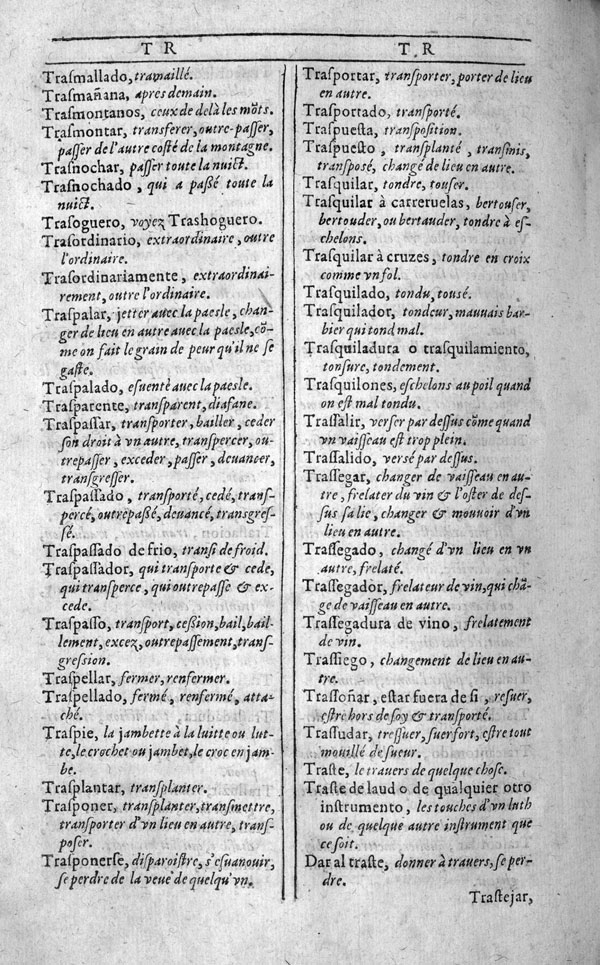 T R
Traſmallado, tramaillé.
Traſmañana, apres demain.
Traſmontanos, ceux de delà les mōts.
Traſmontar, transferer, outre-paſſer,
paſſer de l'autre coſté de la montagne.
Traſnochar, paſſer toute la nuict.
Traſnochado, qui a paßé toute la
nuict.
Traſoguero, voyez Traſhoguero.
Traſordinario, extraordinaire, outre
l'ordinaire.
Traſordinariamente, extraordinai-
rement, outre l'ordinaire.
Traſpalar, jetter auec la paesle, chan-
ger de lieu en autre auec la paesle, cō-
me on fait le grain de peur qu'il ne ſe
gaſte.
Traſpalado, eſuenté auec la paesle.
Traſparente, tranſparent, diafane.
Traſpaſſar, tranſporter, bailler, ceder
ſon droit à vn autre, tranſpercer, ou-
trepaſſer, exceder, paſſer, deuancer,
tranſgreſſer.
Traſpaſſado, tranſporté, cedé, tranſ-
percé, outrepaßé, deuancé, tranſgreſ-
ſé.
Traſpaſſado de frio, tranſi de froid.
Traſpaſſador, qui tranſporte & cede,
qui tranſperce, qui outrepaſſe & ex-
cede.
Traſpaſſo, tranſport, ceßion, bail, bail-
lement, excez, outrepaſſement, tranſ-
greſsion.
Traſpellar, fermer, renfermer.
Traſpellado, fermé, renfermé, atta-
ché.
Traſpie, la jambette à la luitte ou lut-
te, le crochet ou jambet, le croc en jam-
be.
Traſplantar, tranſplanter.
Traſponer, tranſplanter, tranſmettre,
tranſporter d'vn lieu en autre, tranſ-
poſer.
Traſponerſe, diſparoiſtre, s'eſuanouir,
ſe perdre de la veuë de quelqu'vn.
T R
Traſportar, tranſporter, porter de lieu
en autre.
Traſportado, tranſporté.
Traſpuesta, tranſpoſition.
Traſpuesto, tranſplanté, tranſmis,
tranſposé, changé de lieu en autre.
Traſquilar, tondre, touſer.
Traſquilar à carreruelas, bertouſer,
bertouder, ou bertauder, tondre à eſ-
chelons.
Traſquilar à cruzes, tondre en croix
comme vn fol.
Traſquilado, tondu, tousé.
Traſquilador, tondeur, mauuais bar-
bier qui tond mal.
Traſquiladura o traſquilamiento,
tonſure, tondement.
Traſquilones, eſchelons au poil quand
on est mal tondu.
Traſſalir, verſer par deſſus cōme quand
vn vaiſſeau est trop plein.
Traſſalido, versé par deſſus.
Traſſegar, changer de vaiſſeau en au-
tre, frelater du vin & l'oſter de deſ-
ſus ſa lie, changer & mouuoir d'vn
lieu en autre.
Traſſegado, changé d'vn lieu en vn
autre, frelaté.
Traſſegador, frelateur de vin, qui chā-
ge de vaiſſeau en autre.
Traſſegadura de vino, frelatement
de vin.
Traſſiego, changement de lieu en au-
tre.
Traſſoñar, eſtar fuera de ſi, reſuer,
eſtre hors de ſoy & tranſporté.
Traſſudar, treſſuer, ſuer fort, eſtre tout
mouillé de ſueur.
Traſte, le trauers de quelque choſe.
Traſte de laud o de qualquier otro
inſtrumento, les touches d'vn luth
ou de quelque autre inſtrument que
ce ſoit.
Dar al traſte, donner à trauers, ſe per-
dre.
Traſtejar,